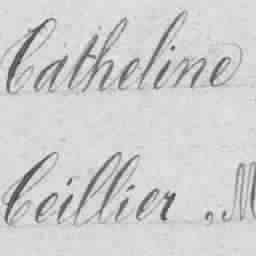 Catheline
Ceillier, M